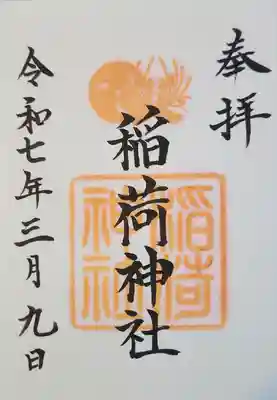 奉拝
稲荷神社
稲荷
神社
令和七年三月九日